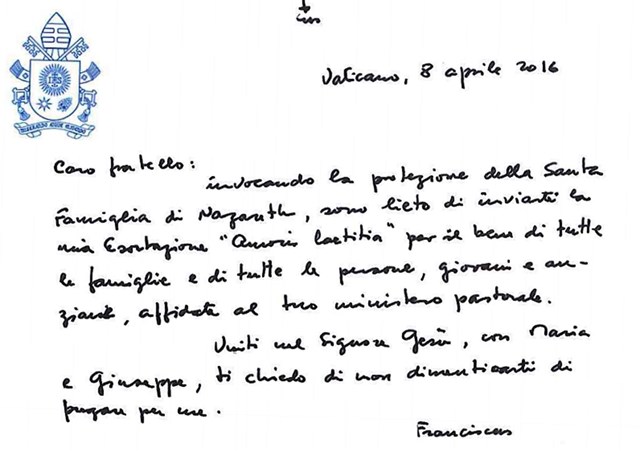 Vaticano, 8 aprile 2016
Caro fratello:
invocando la protezione della Santa
Famiglia di Nazareth, sono lieto di inviarti la
mia Esortazione "Amoris laetitia" per il bene di tutte
le famiglie e di tutte le persone, giovani e an-
ziane, affidate al tuo ministero pastorale.
Uniti nel Signore Gesù, con Maria
e Giuseppe, ti chiedo di non dimenticarti di
pregare per me.
Franciscus